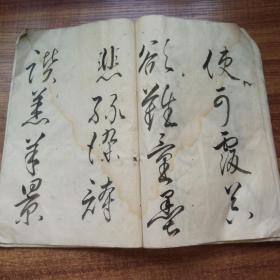 使可覆器
欲難量墨
悲絲染詩
讃羔羊景